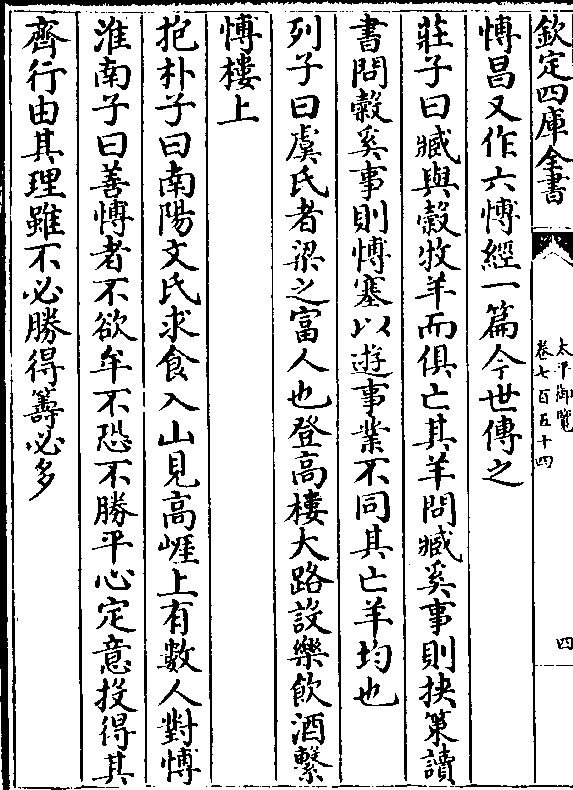 欽定四庫全書
太平御覽
卷七百五十四
四
愽昌又作六愽經一篇今世傳之
莊子曰臧與榖牧羊而俱亡其羊問臧奚事則挾策讀
書問榖奚事則愽塞以遊事業不同其亡羊均也
列子曰虞氏者梁之富人也登高樓大路設樂飲酒擊
愽樓上
抱朴子曰南陽文氏求食入山見高崕上有數人對愽
淮南子曰善愽者不欲牟不恐不勝平心定意投得其
齊行由其理雖不必勝得籌必多